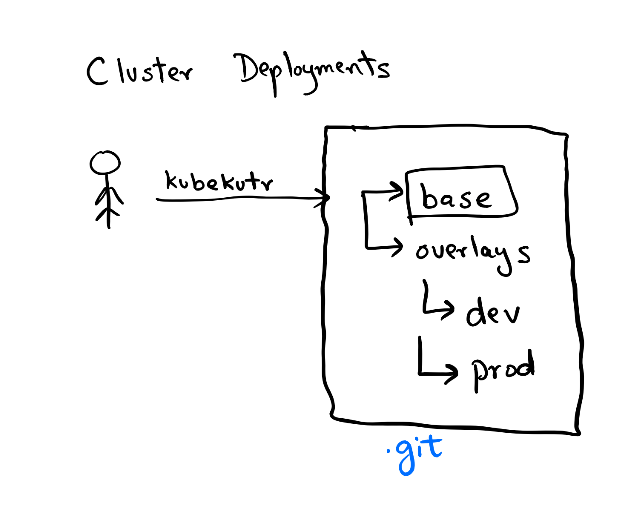 Cluster Deployments
kubekutr
base
overlays
dev
prod
.git